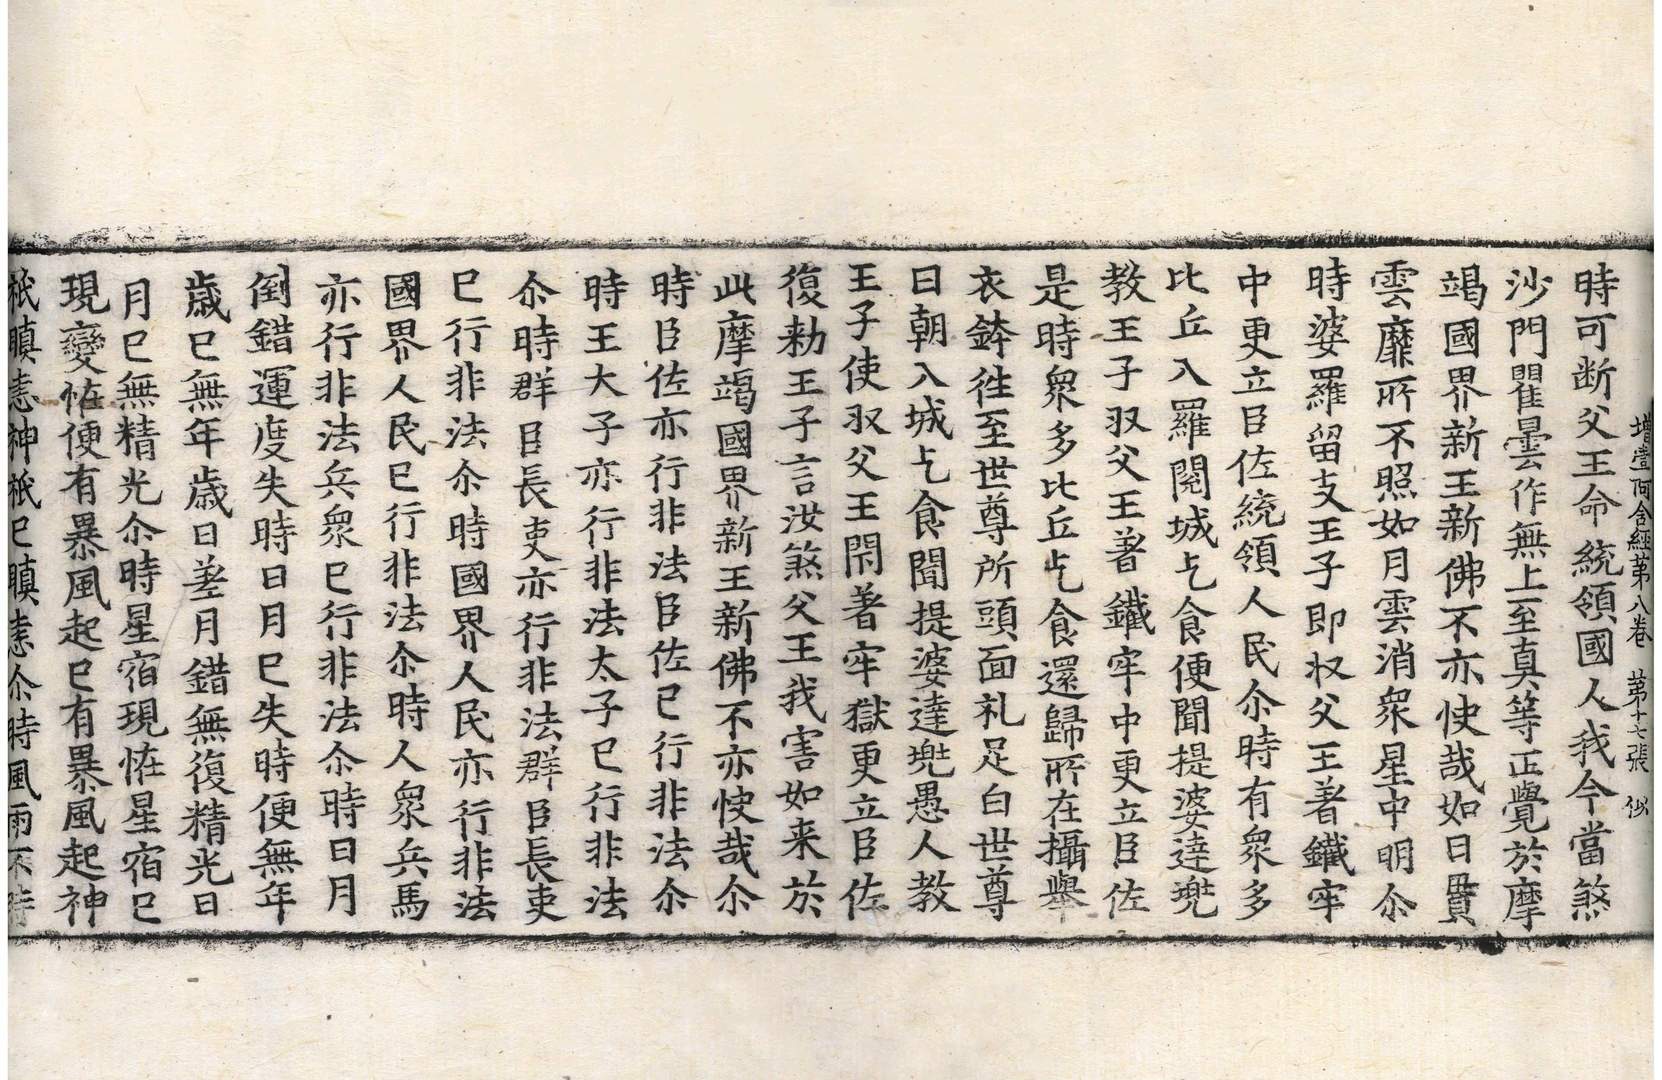 增壹阿含經第八卷 第十七張 似
時可断父王命統領國人我今當煞
沙門瞿曇作無上至真等正覺於摩
竭國界新王新佛不亦快哉如日貫
雲靡所不照如月雲消衆星中明尒
時婆羅留支王子即収父王著鐵牢
中更立臣佐統領人民尒時有衆多
比丘入羅閱城乞食便聞提婆達兠
教王子収父王著鐵牢中更立臣佐
是時衆多比丘乞食還歸所在攝舉
衣鉢往至世尊所頭面礼足白世尊
曰朝入城乞食聞提婆達兠愚人教
王子使収父王閇著牢獄更立臣佐
復勑王子言汝煞父王我害如来於
此摩竭國界新王新佛不亦快哉尒
時臣佐亦行非法臣佐已行非法尒
時王大子亦行非法太子已行非法
尒時群臣長吏亦行非法群臣長吏
已行非法尒時國界人民亦行非法
國界人民已行非法尒時人衆兵馬
亦行非法兵衆已行非法尒時日月
倒錯運度失時日月已失時便無年
歲已無年歲日差月錯無復精光日
月已無精光尒時星宿現恠星宿已
現變恠便有暴風起已有暴風起神
祇瞋恚神祇已瞋恚尒時風雨不時